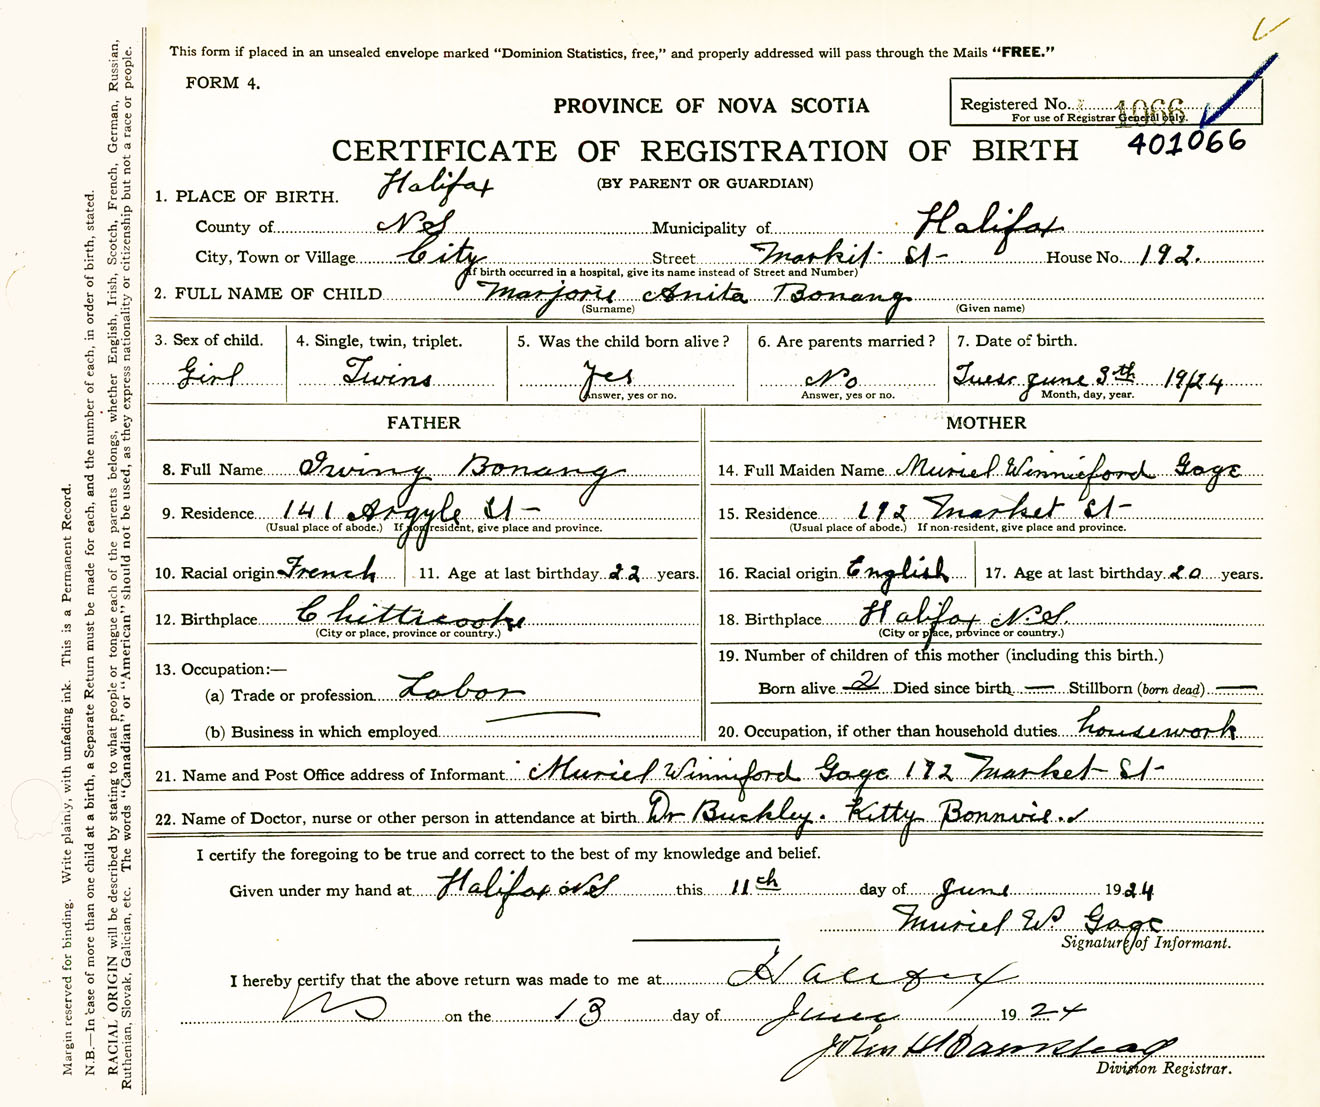 This form if placed in an unsealed envelope marked "Dominion Statistics, free," and properly addressed will pass through the Mails "FREE."
FORM 4.
PROVINCE OF NOVA SCOTIA
Registered No. 1066
For use of Registrar General only.
401066
CERTIFICATE OF REGISTRATION OF BIRTH
(BY PARENT OR GUARDIAN)
1. PLACE OF BIRTH. Halifax
County of NS Municipality of Halifax
City, Town or Village City Street Markit St- House No. 192.
(If birth occurred in a hospital, give its name instead of Street and Number)
2. FULL NAME OF CHILD Marjorie Anita Bonang
(Surname) (Given name)
3. Sex of child. 4. Single, twin, triplet. 5. Was the child born alive? 6. Are parents married? 7. Date of birth.
Girl Twins Yes No Tues June 3th 1924
Answer, yes or no. Answer, yes or no. Month, day, year.
FATHER MOTHER
8. Full Name Irving Bonang 14. Full Maiden Name Muriel Winnieford Gage
9. Residence 141 Argyle St- 15. Residence 192 Market St-
(Usual place of abode.) If non-resident, give place and province. (Usual place of abode.) If non-resident, give place and province.
10. Racial origin French 11. Age at last birthday 22 years. 16. Racial origin English 17. Age at last birthday 20 years.
12. Birthplace Chitticooke 18. Birthplace Halifax N.S.
(City or place, province or country.) (City or place, province or country.)
13. Occupation:— 19. Number of children of this mother (including this birth.)
(a) Trade or profession Labor Born alive 2 Died since birth — Stillborn (born dead) —
(b) Business in which employed — 20. Occupation, if other than household duties housework
21. Name and Post Office address of Informant Muriel Winniford Gage 192 Market St-
22. Name of Doctor, nurse or other person in attendance at birth Dr Buckley. Kitty Bonnvie.
I certify the foregoing to be true and correct to the best of my knowledge and belief.
Given under my hand at Halifax NS this 11th day of June 1924
Muriel W. Gage
Signature of Informant.
I hereby certify that the above return was made to me at Halifax
NS on the 13 day of June 1924
John H Barnstead
Division Registrar.
Margin reserved for binding. Write plainly, with unfading ink. This is a Permanent Record.
N.B.—In case of more than one child at a birth, a Separate Return must be made for each, and the number of each, in order of birth, stated.
RACIAL ORIGIN will be described by stating to what people or tongue each of the parents belongs, whether English, Irish, Scotch, French, German, Russian,
Ruthenian, Slovak, Galician, etc. The words "Canadian" or "American" should not be used, as they express nationality or citizenship but not a race or people.